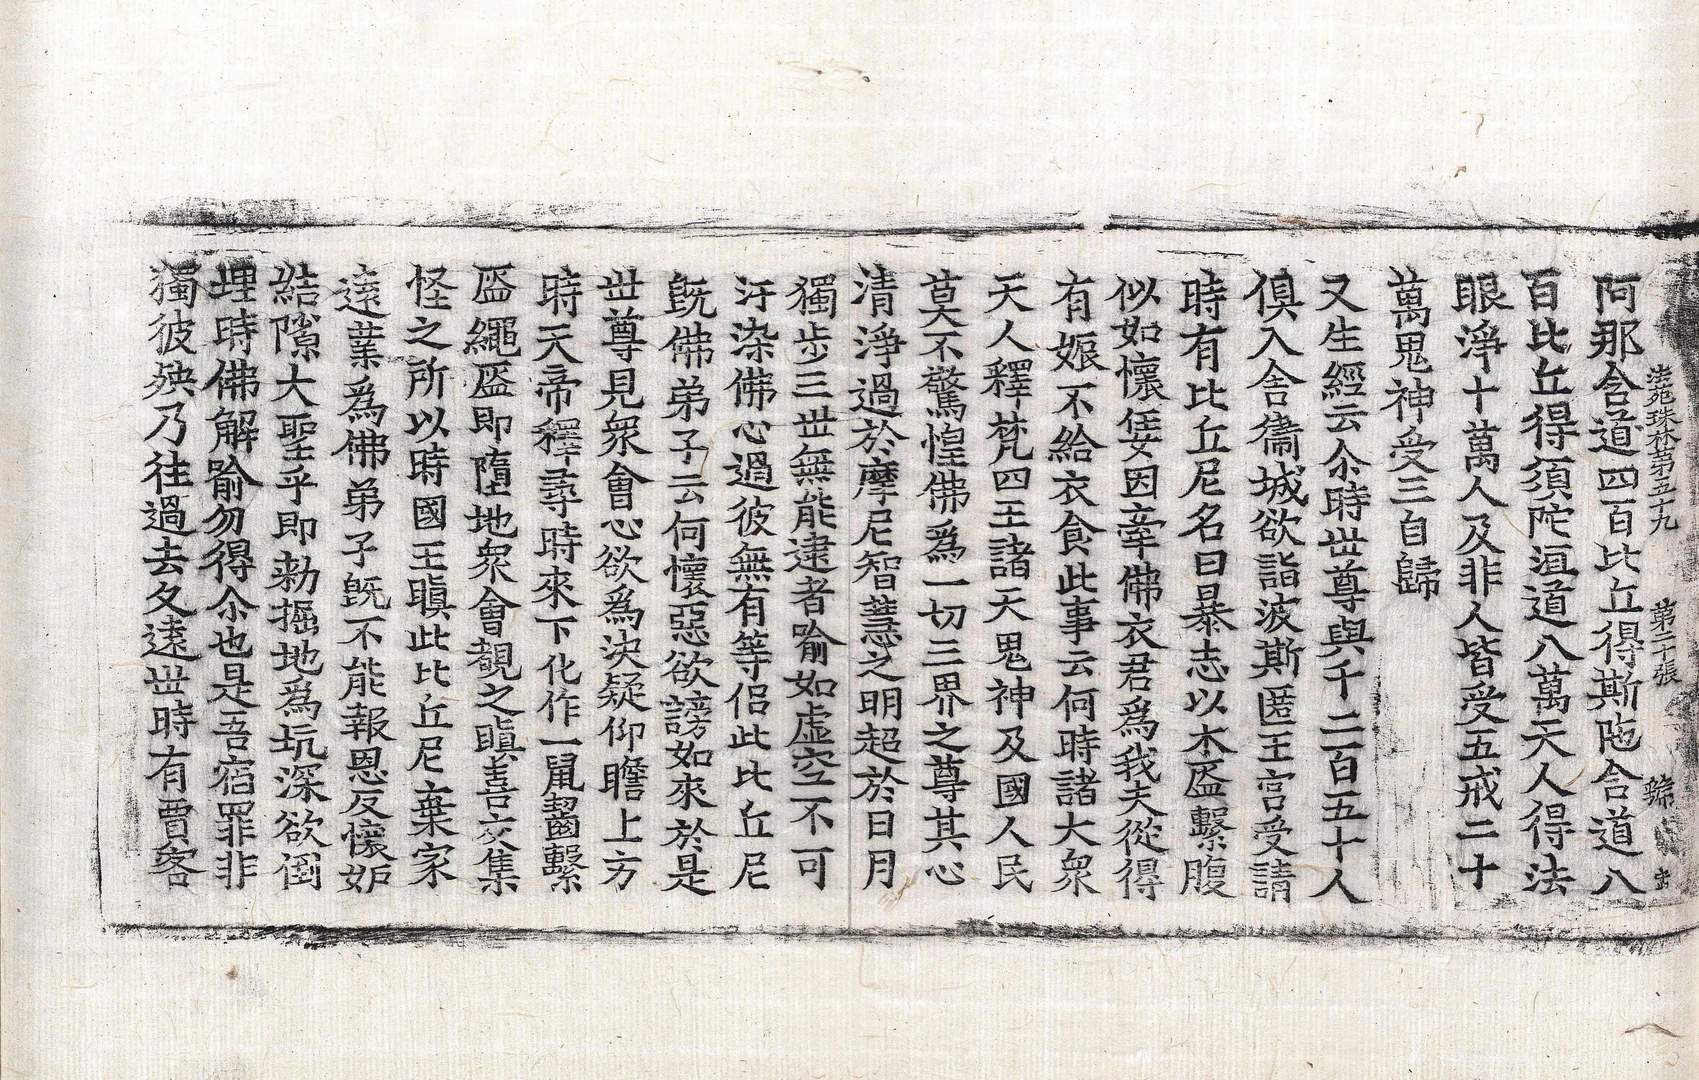 法苑珠林第五十九　第二十張　歸
阿那含道四百比丘得斯陁含道八
百比丘得須陀洹道八萬天人得法
眼淨十萬人及非人皆受五戒二十
萬鬼神受三自歸
又生經云尒時世尊與千二百五十人
俱入舍衛城欲詣波斯匿王宮受請
時有比丘尼名曰暴志以木盂繫腹
似如懷妊因牽佛衣君爲我夫從得
有娠不給衣食此事云何時諸大衆
天人釋梵四王諸天鬼神及國人民
莫不驚惶佛爲一切三界之尊其心
清淨過於摩尼智慧之明超於日月
獨步三世無能逮者喻如虛空不可
汙染佛心過彼無有等侶此比丘尼
旣佛弟子云何懷惡欲謗如來於是
世尊見衆會心欲爲決疑仰瞻上方
時天帝釋尋時來下化作一鼠齧繫
盂繩盂卽墮地衆會覩之瞋喜交集
怪之所以時國王瞋此比丘尼棄家
遠業爲佛弟子旣不能報恩反懷妒
結隙大聖乎卽勑掘地爲坑深欲倒
埋時佛解喻勿得尒也是吾宿罪非
獨彼殃乃往過去久遠世時有賈客